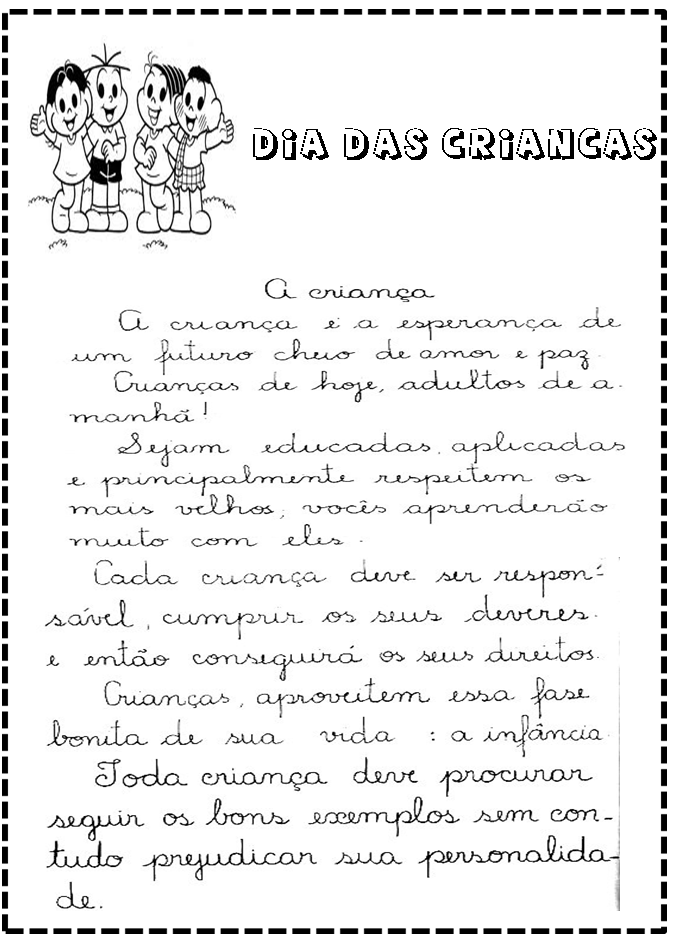 DIA DAS CRIANCAS
A criança
A criança é a esperança de
um futuro cheio de amor e paz.
Crianças de hoje, adultos de a-
manhã!
Sejam educadas, aplicadas
e principalmente respeitem os
mais velhos; vocês aprenderão
muito com eles.
Cada criança deve ser respon-
sável, cumprir os seus deveres
e então conseguirá os seus direitos.
Crianças, aproveitem essa fase
bonita de sua vida : a infância.
Toda criança deve procurar
seguir os bons exemplos sem con-
tudo prejudicar sua personalida-
de.